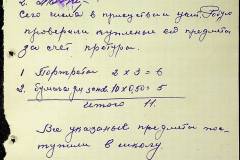 Сего числа в присутствии уст.
проверили купленые его предметы
за счёт
1 Портреты 2 х 3 = 6
2. бумага 10 х 0,50 = 5
итого 11.
Все указаные предметы пос-
тупили в школу